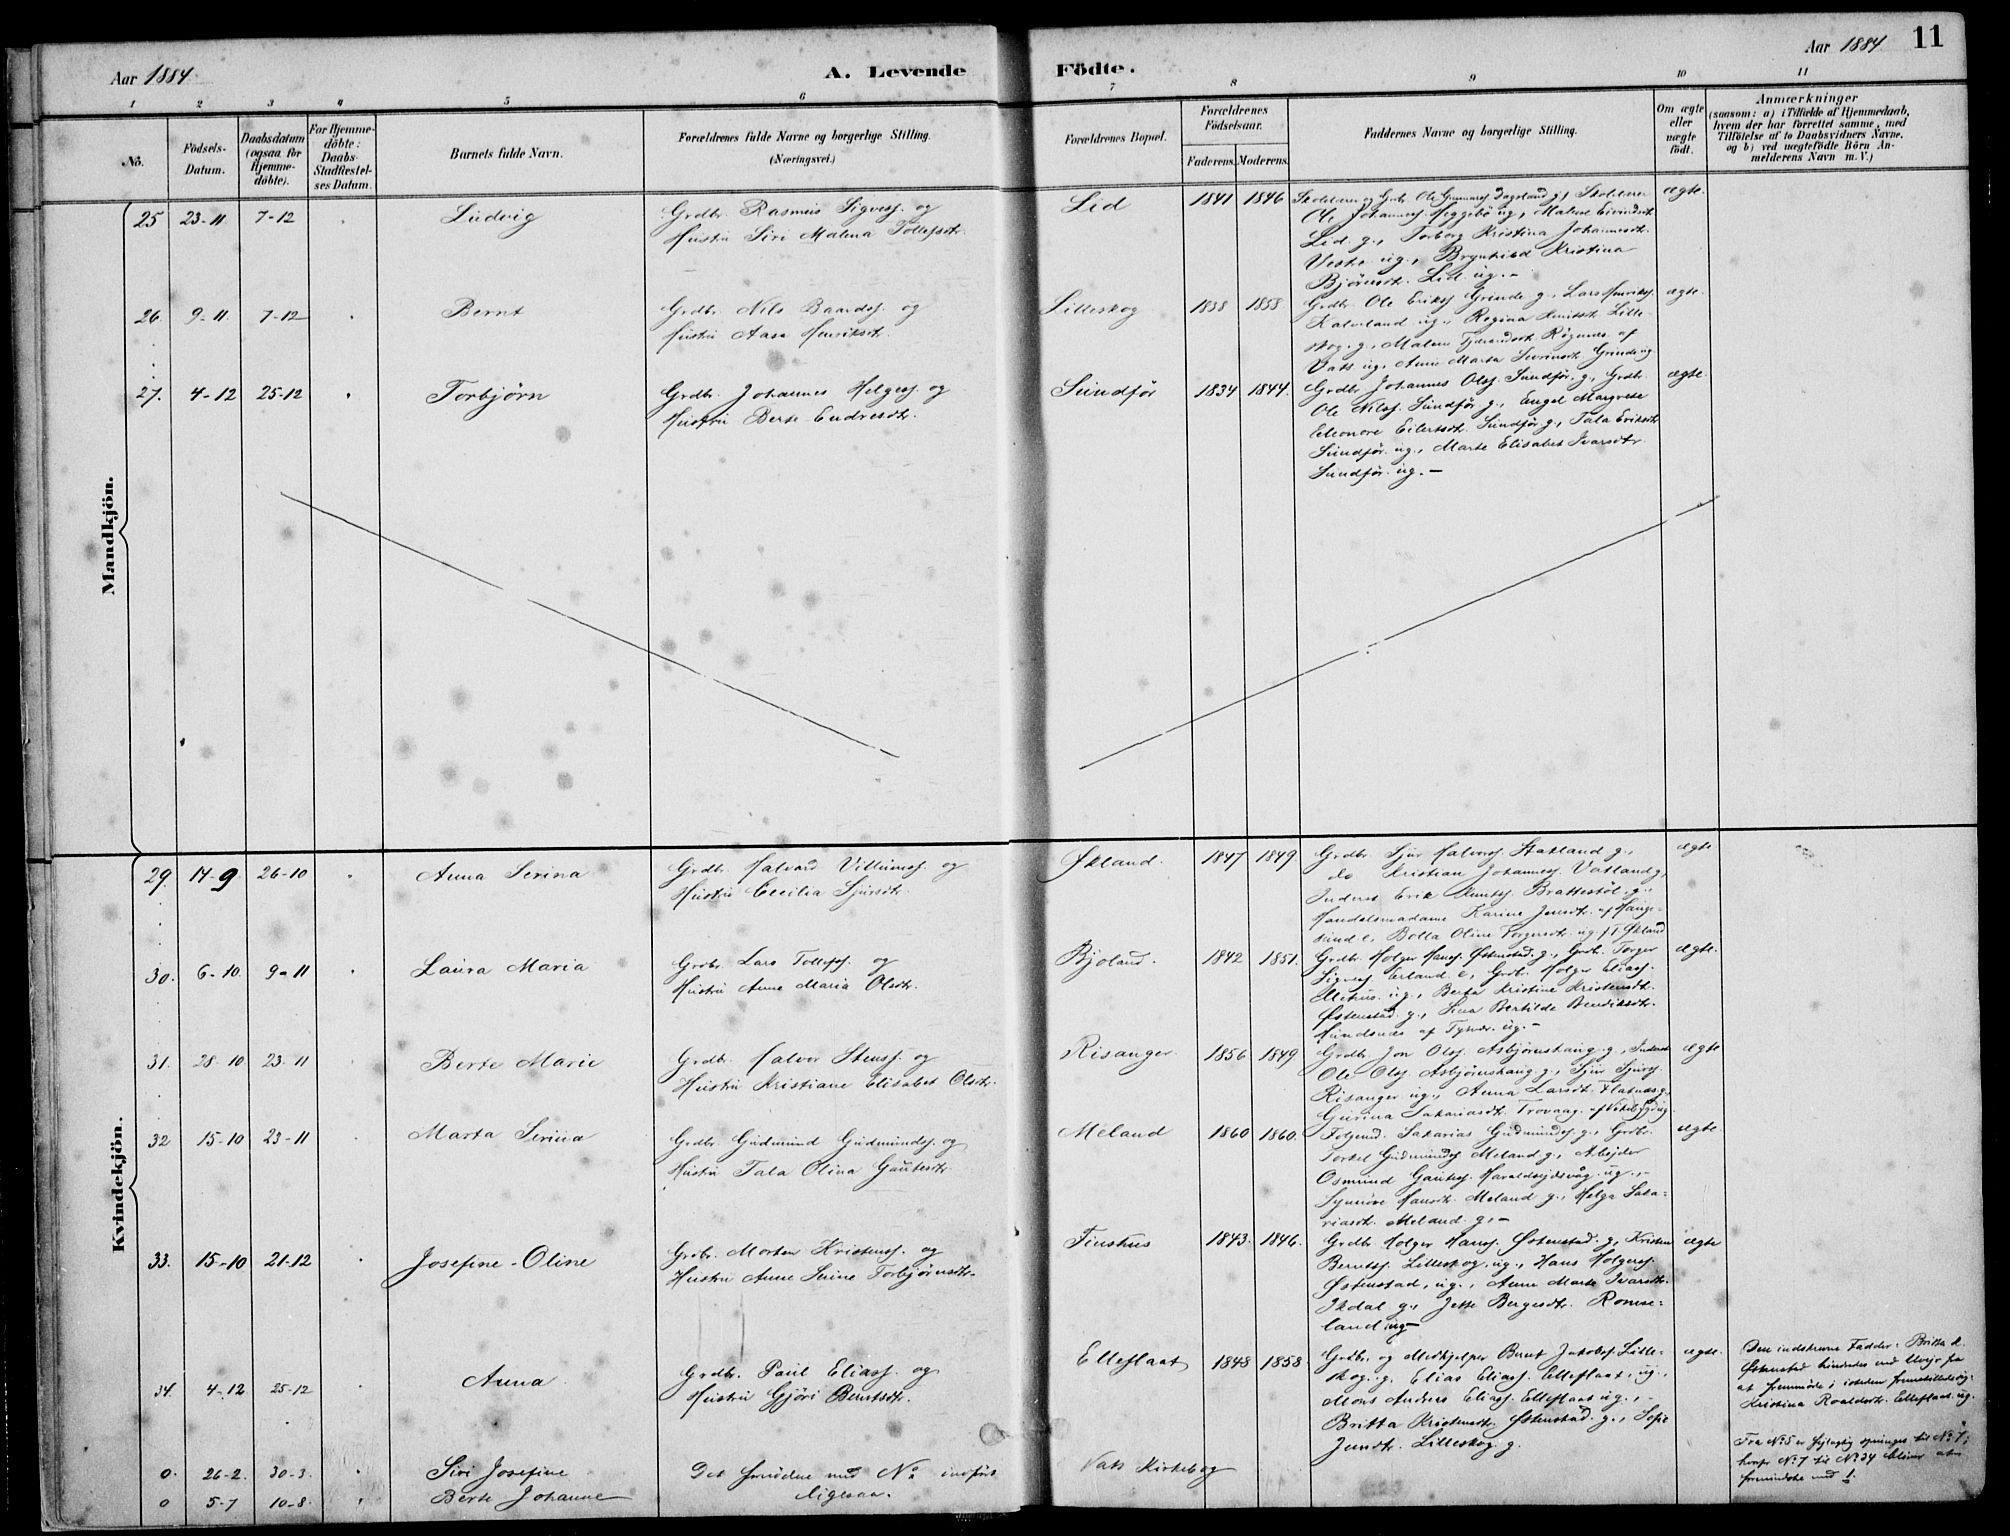 Aar 1884.
A. Levende Födte.
Aar 1884 11
1 2 3 4 5 6 7 8 9 10 11
No.
Födsels-Datum.
Daabsdatum (ogsaa for Hjemme-döbte).
For Hjemme-döbte: Daabs-Stadfæstel-ses Datum.
Barnets fulde Navn.
Forældrenes fulde Navne og borgerlige Stilling.
(Næringsvei.)
Forældrenes Bopæl.
Forældrenes Födselsaar.
Faderens. Moderens.
Faddernes Navne og borgerlige Stilling.
Om ægte eller uægte födt.
Anmærkninger
(saasom: a) i Tilfælde af Hjemmedaab,
hvem der har forrettet samme, med
Tilföielse af to Daabsvidners Navne,
og b) ved uægtefödte Börn An-
melderens Navn m. V.)
Mandkjön.
25 23-11. 7-12 Ludvig
Grdbr. Rasmus Sigvess. og
Hustru Siri Malena Tollefsdtr.
Lid 1841 1846
Ole Gunnarss. Dagsland g.,
Ole Johanness. Heggebö ug., Malene Eivindsdt.
Lid g., Torborg Kristina Johannesdt.
ug., Brynhild Kristina
Björnsdt. Lid ug. -
ægte.
26. 9-11. 7-12 Bernt
Grdbr. Nils Baardss. og
Hustru Aasa Henriksdt.
Lilleskog 1838 1858
Grdbr. Ole Eriks. Grinde g., Lars Henriks.
ug., Regina Lille-
skog. g., Malene
Vats ug., Anne Marta Severinsdt. Grinde ug.
ægte.
27. 4-12 25-12 Torbjörn
Grdbr. Johannes Helgess. og
Hustru Berte Endresdtr.
Sundför 1834 1844.
Grdbr. Johannes Olss. Sundför. g., Grdbr.
Ole Nilss. Sundför g., Engel Margrete
Eleonore Eilertsdt. Sundför g., Tala Eriksdtr.
Sundför ug., Marte Elisabet Ivarsdtr.
Sundför. ug. -
ægte.
Kvindekjön.
29. 14-9 26-10 Anna Serina
Grdbr. Halvard Villumss. og
Hustru Cecilia Sjursdtr.
Økland. 1847 1849
Grdbr. Sjur Halvorss. Stakland g.,
do Kristian Johanness. Vatland g,
Inderst Erik Knuts. Brattestöl. g.,
Handelsmadame Karine Jensdt. af Hauge-
sund e, Bolla Oline Torgersdt. ug. f. Økland
ægte
30. 6-10. 9-11 Laura Maria
Grdbr. Lars Tollefss. og
Hustru Anne Maria Olsdtr.
Bjoland. 1842 1851.
Grdbr. Holger Hanss. Østenstad. g., Grdb. Torger
Sigvess. Erland e, Grdbr. Holger Eliass.
ug., Berta Kristine Kristensdt.
Østenstad. g., Lina Bertilde Bendiksdtr.
af Tysvær. ug. -
ægte.
31. 28-10. 23-11 Berte Marie
Grdbr. Halvor Stenss. og
Hustru Kristiane Elisabet Olsdtr.
Risanger. 1856 1849
Grdbr. Jon Olss. Asbjörnshaug. g., Inderst
Ole Olss. Asbjörnshaug g., Sjur Sjurss.
Risanger ug., Anna Larsdt. Flatnes g.,
Gurina Sakariasdt. Trovaag. af Vikebygd ug.
ægte
32 15-10 23-11 Marta Serina
Grdbr Gudmund Gudmunds. og
Hustru Tala Olina Gautesdt.
Meland 1860 1860.
Sakarias Gudmundss. g., Grdbr.
Torkel Gudmundss. Meland g., Arbejder
Osmund Gautess. Haraldseidsvåg ug., -
Synnöve Hansdt. Meland g., Helga Saka-
riasdt. Meland. g. -
ægte.
33. 15-10 21-12 Josefine-Oline
Grdbr. Morten Kristenss. og
Hustru Anne Serine Torbjörnsdtr.
1843. 1846.
Grdbr Holger Hanss. Østenstad. g., Kristen
Berntss. Lilleskog, ug., Hans Holgerss.
Østenstad, ug., Anne Marte Ivarsdt.
Ikdal g., Jette Bergesdtr. Romse-
land ug -
ægte
34. 4-12 25-12 Anna
Grdbr. Paul Eliass. og
Hustru Gjöri Berntsdt.
Elleflaat 1848 1858.
Grdbr. og Medhjelper Bernt Jakobss. Lille-
skog g. Elias Eliass. Elleflaat, ug.,
Mons Andreas Eliass. Elleflaat ug., -
Britta Kristensdtr. Østenstad. g., Sofie
Lilleskog. g.
ægte.
Den indskrevne Fadder: Britta K.
Østenstad hindredes ved Uvejr fra
at fremmöde; isteden fremstillede sig
Kristina Roaldsdt. Elleflaat. ug.
0. 26-2. 30-3. Siri Josefine
Det
Vats Kirkebog
0 5-7 10-8. Berte Johanne
ligesaa.
Fra No 5 er fejlagtig springes til No 7;
No 7 til No 34 bliver at
formindske med 1.